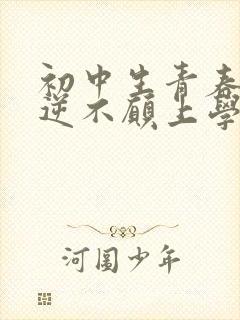 初中生青春
逆不願上學
河圖少年